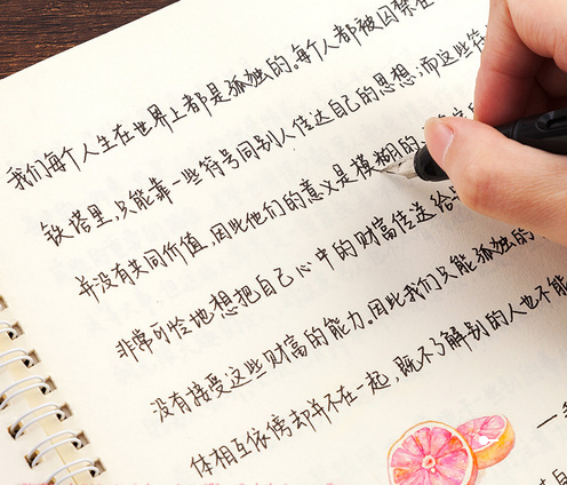 我们每个人生在世界上都是孤独的。每个人都被囚禁在
铁塔里,只能靠一些符号同别人传达自己的思想;而这些符
并没有共同价值,因此他们的意义是模糊的
非常可怜地想把自己心中的财富传送给
没有接受这些财富的能力。因此我们只能孤独的
体相互依傍却并不在一起,既不了解别的人也不能
一